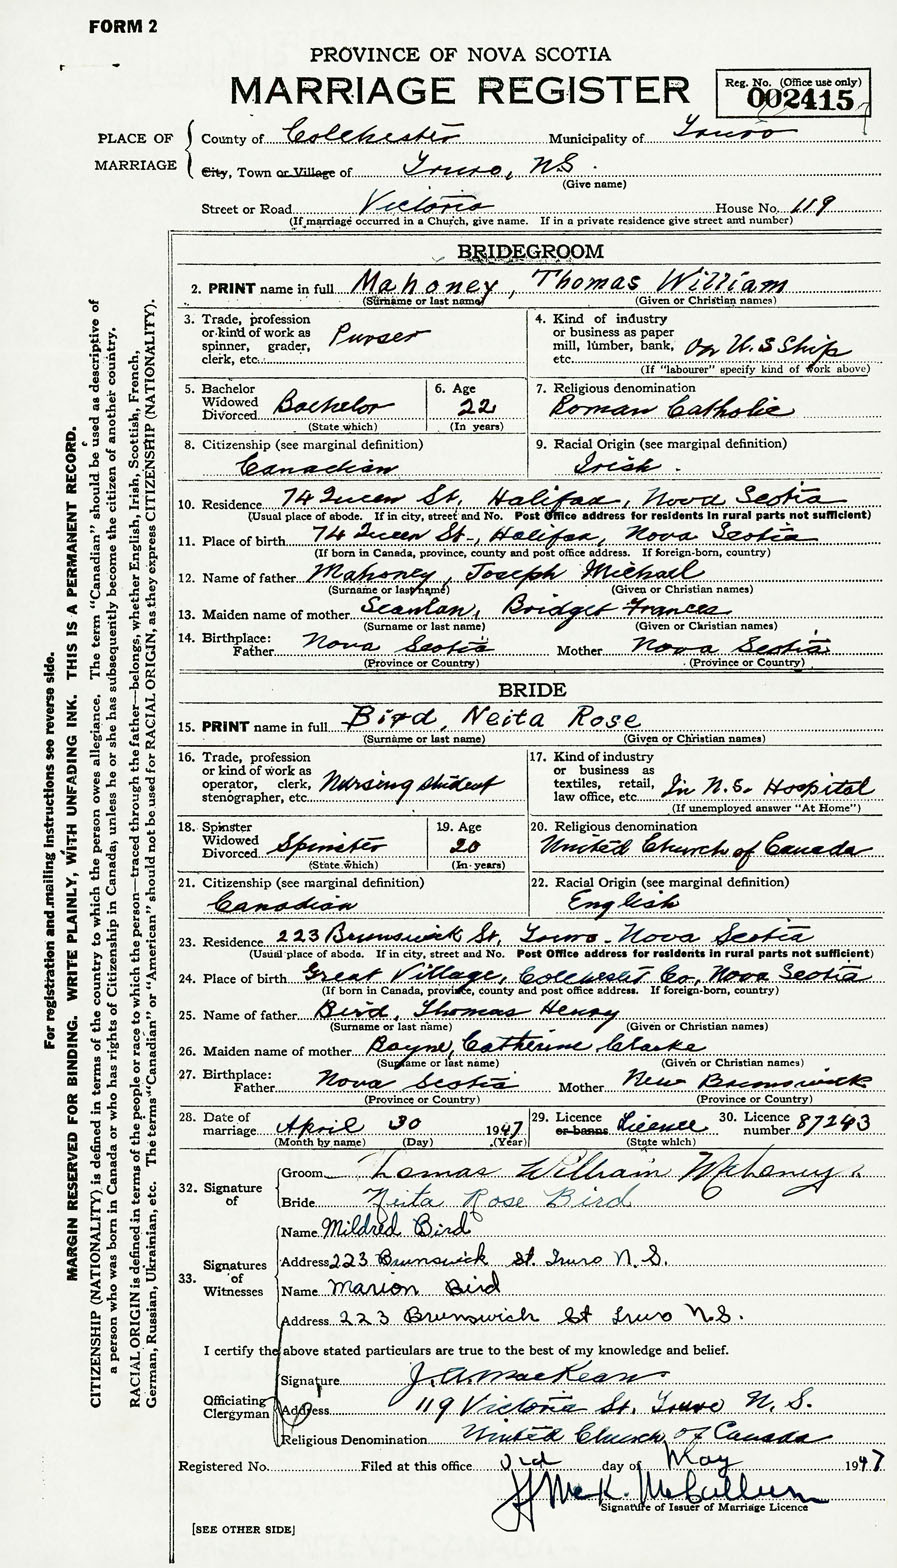 FORM 2
PROVINCE OF NOVA SCOTIA
MARRIAGE REGISTER
Reg. No. (Office use only)
002415
PLACE OF MARRIAGE
County of Colchester Municipality of Truro
City, Town or Village of Truro, N.S.
(Give name)
Street or Road Victoria House No. 119
(If marriage occurred in a Church, give name. If in a private residence give street and number)
BRIDEGROOM
2. PRINT name in full Mahoney, Thomas William
(Surname or last name) (Given or Christian names)
3. Trade, profession or kind of work as spinner, grader, clerk, etc. Purser
4. Kind of industry or business as paper mill, lumber, bank, etc. On U.S Ship
(If "labourer" specify kind of work above)
5. Bachelor Widowed Divorced Bachelor
(State which)
6. Age 22
(In years)
7. Religious denomination
Roman Catholic
8. Citizenship (see marginal definition)
Canadian
9. Racial Origin (see marginal definition)
Irish.
10. Residence 74 Queen St, Halifax, Nova Scotia
(Usual place of abode. If in city, street and No. Post Office address for residents in rural parts not sufficient)
11. Place of birth 74 Queen St, Halifax, Nova Scotia
(If born in Canada, province, county and post office address. If foreign-born, country)
12. Name of father Mahoney, Joseph Michael
(Surname or last name) (Given or Christian names)
13. Maiden name of mother Scanlan, Bridget Frances
(Surname or last name) (Given or Christian names)
14. Birthplace: Father Nova Scotia Mother Nova Scotia
(Province or Country) (Province or Country)
BRIDE
15. PRINT name in full Bird, Neita Rose
(Surname or last name) (Given or Christian names)
16. Trade, profession or kind of work as operator, clerk, stenographer, etc. Nursing student
17. Kind of industry or business as textiles, retail, law office, etc. In N.S. Hospital
(If unemployed answer "At Home")
18. Spinster Widowed Divorced Spinster
(State which)
19. Age 20
(In years)
20. Religious denomination
United Church of Canada
21. Citizenship (see marginal definition)
Canadian
22. Racial Origin (see marginal definition)
English
23. Residence 223 Brunswick St, Truro - Nova Scotia
(Usual place of abode. If in city, street and No. Post Office address for residents in rural parts not sufficient)
24. Place of birth Great Village, Colchester Co, Nova Scotia
(If born in Canada, province, county and post office address. If foreign-born, country)
25. Name of father Bird, Thomas Henry
(Surname or last name) (Given or Christian names)
26. Maiden name of mother Bayne, Catherine Clarke
(Surname or last name) (Given or Christian names)
27. Birthplace: Father Nova Scotia Mother New Brunswick
(Province or Country) (Province or Country)
28. Date of marriage April 30 1947
(Month by name) (Day) (Year)
29. Licence or banns Licence
(State which)
30. Licence number 87243
32. Signature of
Groom Thomas William Mahoney
Bride Neita Rose Bird
33. Signatures of Witnesses
Name Mildred Bird
Address 223 Brunswick St. Truro N.S.
Name Marion Bird
Address 223 Brunswick St Truro N.S.
I certify the above stated particulars are true to the best of my knowledge and belief.
Officiating Clergyman
Signature J.A. MacKean
Address 119 Victoria St. Truro N.S.
Religious Denomination United Church of Canada
Registered No. Filed at this office 3rd day of May 1947
H McK. McCallum
Signature of Issuer of Marriage Licence
[SEE OTHER SIDE]
For registration and mailing instructions see reverse side.
MARGIN RESERVED FOR BINDING. WRITE PLAINLY, WITH UNFADING INK. THIS IS A PERMANENT RECORD.
CITIZENSHIP (NATIONALITY) is defined in terms of the country to which the person owes allegiance. The term "Canadian" should be used as descriptive of
a person who was born in Canada or who has rights of Citizenship in Canada, unless he or she has subsequently become the citizen of another country.
RACIAL ORIGIN is defined in terms of the people or race to which the person—traced through the father—belongs, whether English, Irish, Scottish, French,
German, Russian, Ukrainian, etc. The terms "Canadian" or "American" should not be used for RACIAL ORIGIN, as they express CITIZENSHIP (NATIONALITY).